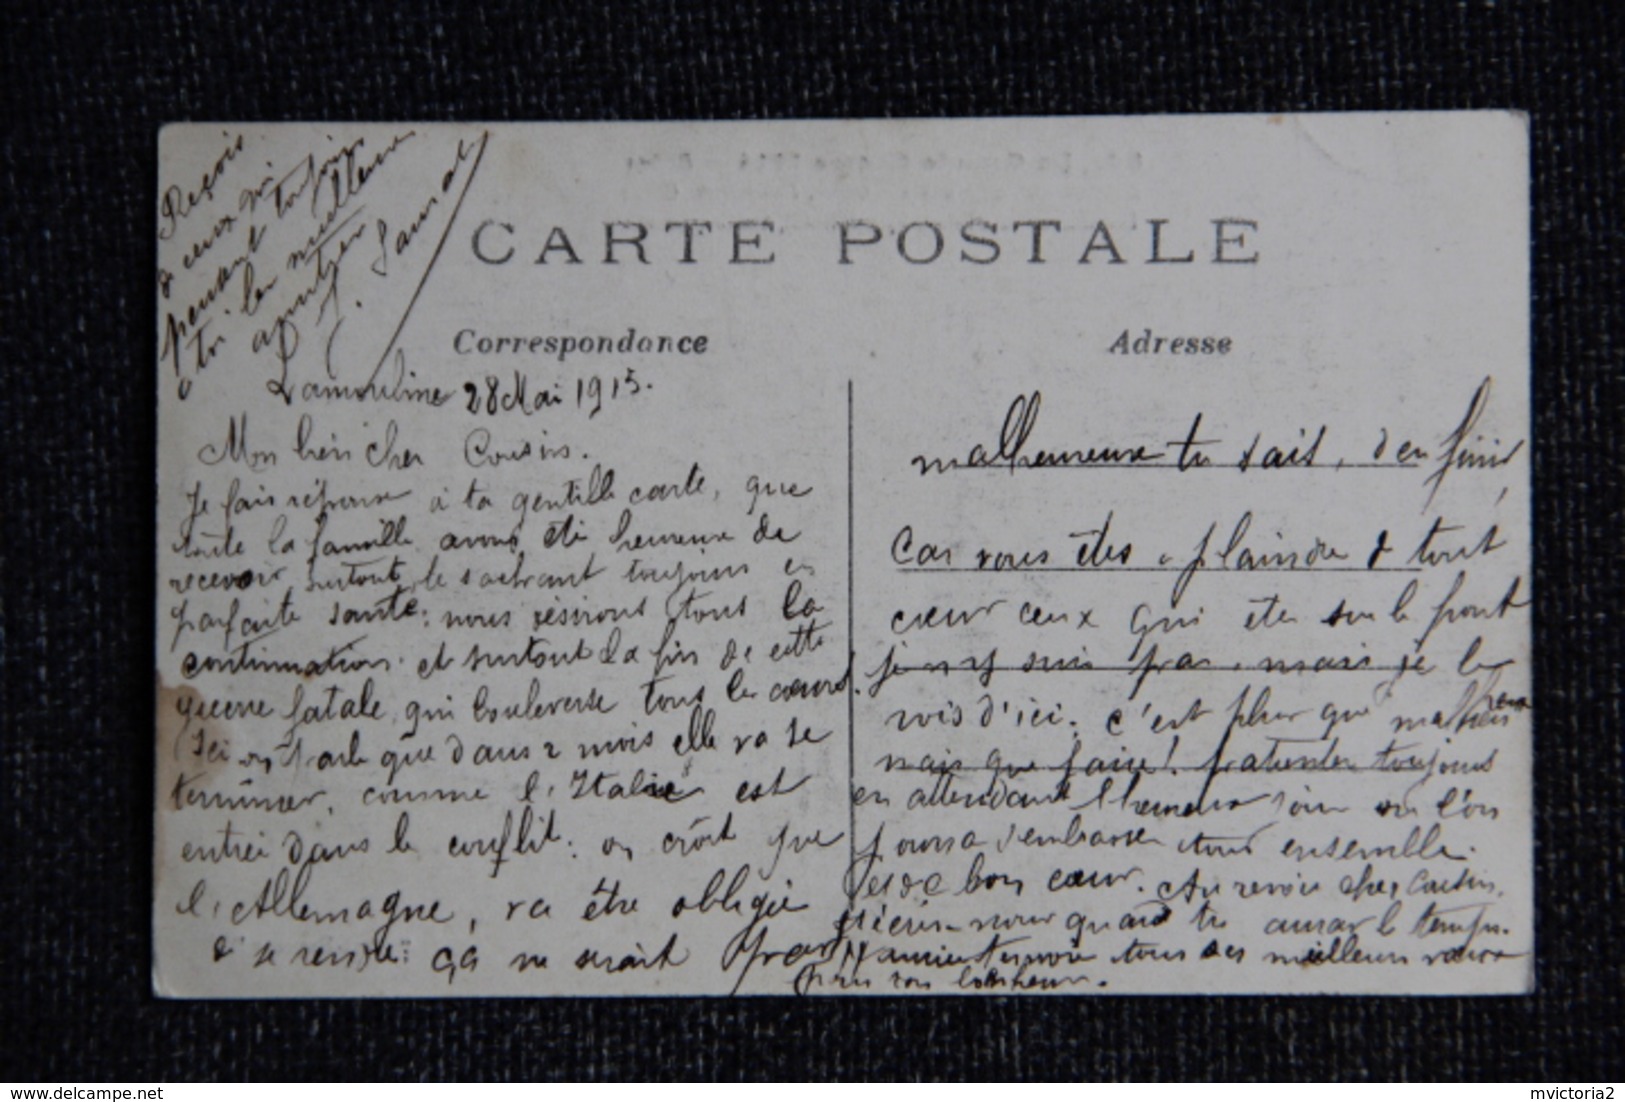 CARTE POSTALE
Correspondance
Adresse
Lamouline 28 Mai 1915.
Mon bien cher Cousin.
Je fais réponse à ta gentille carte, que
toute la famille avons été heureux de
recevoir, surtout te sachant toujours en
parfaite santé; nous désirons tous la
continuation. et surtout la fin de cette
guerre fatale, qui bouleverse tous les cœurs.
Ici on parle que dans 2 mois elle va se
terminer, comme l'Italie est
entrée dans le conflit; on croit que
l'Allemagne, va être obligée
de se rendre; ça ne serait pas
malheureux tu sait, d'en finir,
Car vous êtes a plaindre d tout
cœur ceux qui êtes sur le front
je n'y suis pas, mais je le
vois d'ici; c'est plus que malheureux
mais que faire! patienter toujours
en attendant l'heureux jour où l'on
pourra s'embrasser tous ensemble
et de bon cœur. Au revoir cher Cousin,
écris-nous quand tu auras le temps.
tous ses meilleurs vœux
pour ton bonheur.
Reçois
de ceux qui
pensent toujours
à toi les meilleures
amitiés
mvictoria2